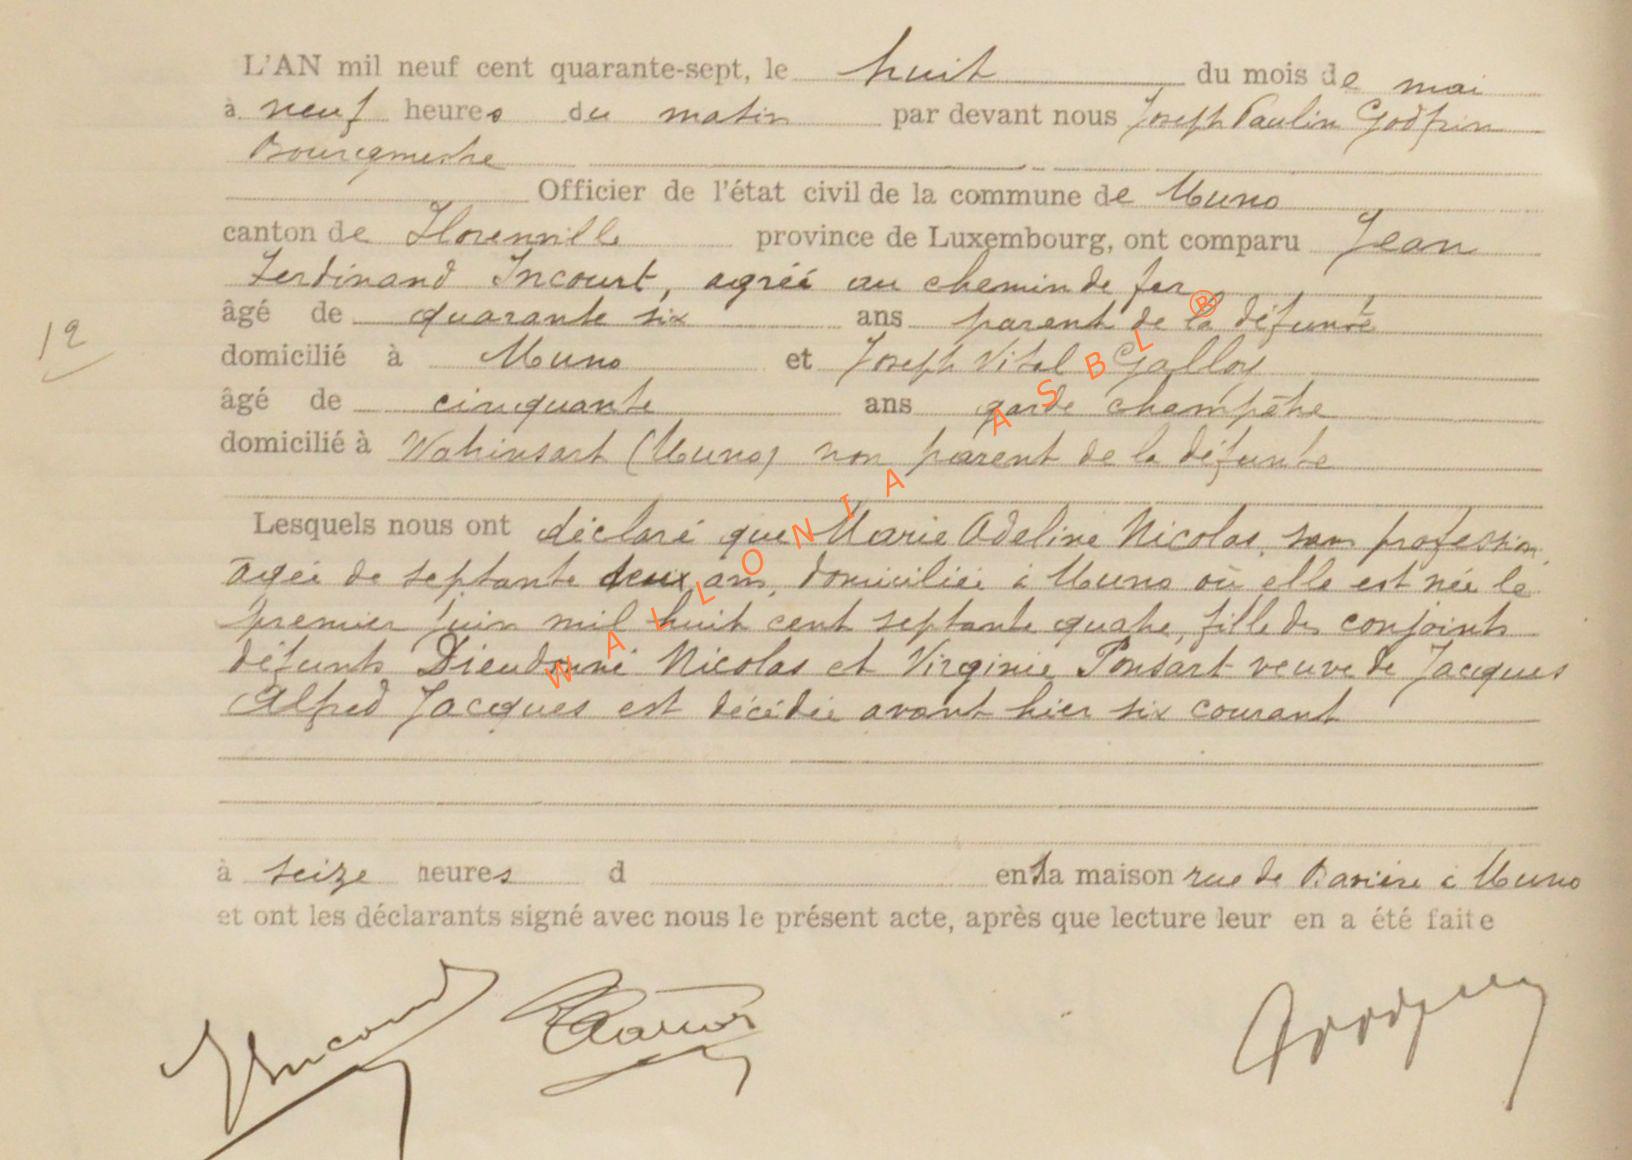 L'AN mil neuf cent quarante-sept, le huit du mois de mai
à neuf heures du matin par devant nous Joseph Paulin Godfrin
Bourgmestre
Officier de l'état civil de la commune de Muno
canton de Florenville province de Luxembourg, ont comparu Jean
Ferdinand Incourt, agréé au chemin de fer
âgé de quarante six ans parent de la défunte
12
domicilié à Muno et Joseph Vital Galloy
âgé de cinquante ans garde champêtre
domicilié à Watrinsart (Muno) non parent de la défunte
Lesquels nous ont déclaré que Marie Adeline Nicolas, sans profession,
âgée de septante deux ans, domiciliée à Muno où elle est née le
premier juin mil huit cent septante quatre, fille des conjoints
défunts Dieudonné Nicolas et Virginie Ponsart veuve de Jacques
Alfred Jacques est décédée avant hier six courant
à seize heures d en sa maison rue de à Muno
et ont les déclarants signé avec nous le présent acte, après que lecture leur en a été faite
JIncourt Godfrin
WALLONIA ASBL ®